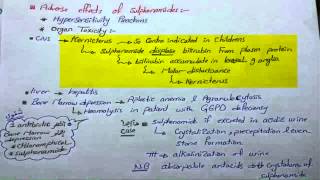 Adverse effects of sulphonamides :-
Hypersensitivity Reactions
Organ Toxicity :-
CNS → Kernicterus → So Contra indicated in Childrens
Sulphonamide displace bilirubin from plasma protein
bilirubin accumulate in basal ganglia
Motor disturbance
Kernicterus
liver → hepatitis
Bone Marrow depression → Aplastic anemia & Agranulocytosis
Haemolysis in patient with G6PD deficiency
2 antibiotic
Bone Marrow
depression
chloramphenicol
sulphonamide
case → sulphonamide if excreted in acidic urine
Crystallization, precipitation & even
stone formation
TTT → alkalinization of urine
N.B
Crystalluria of
sulphonamide